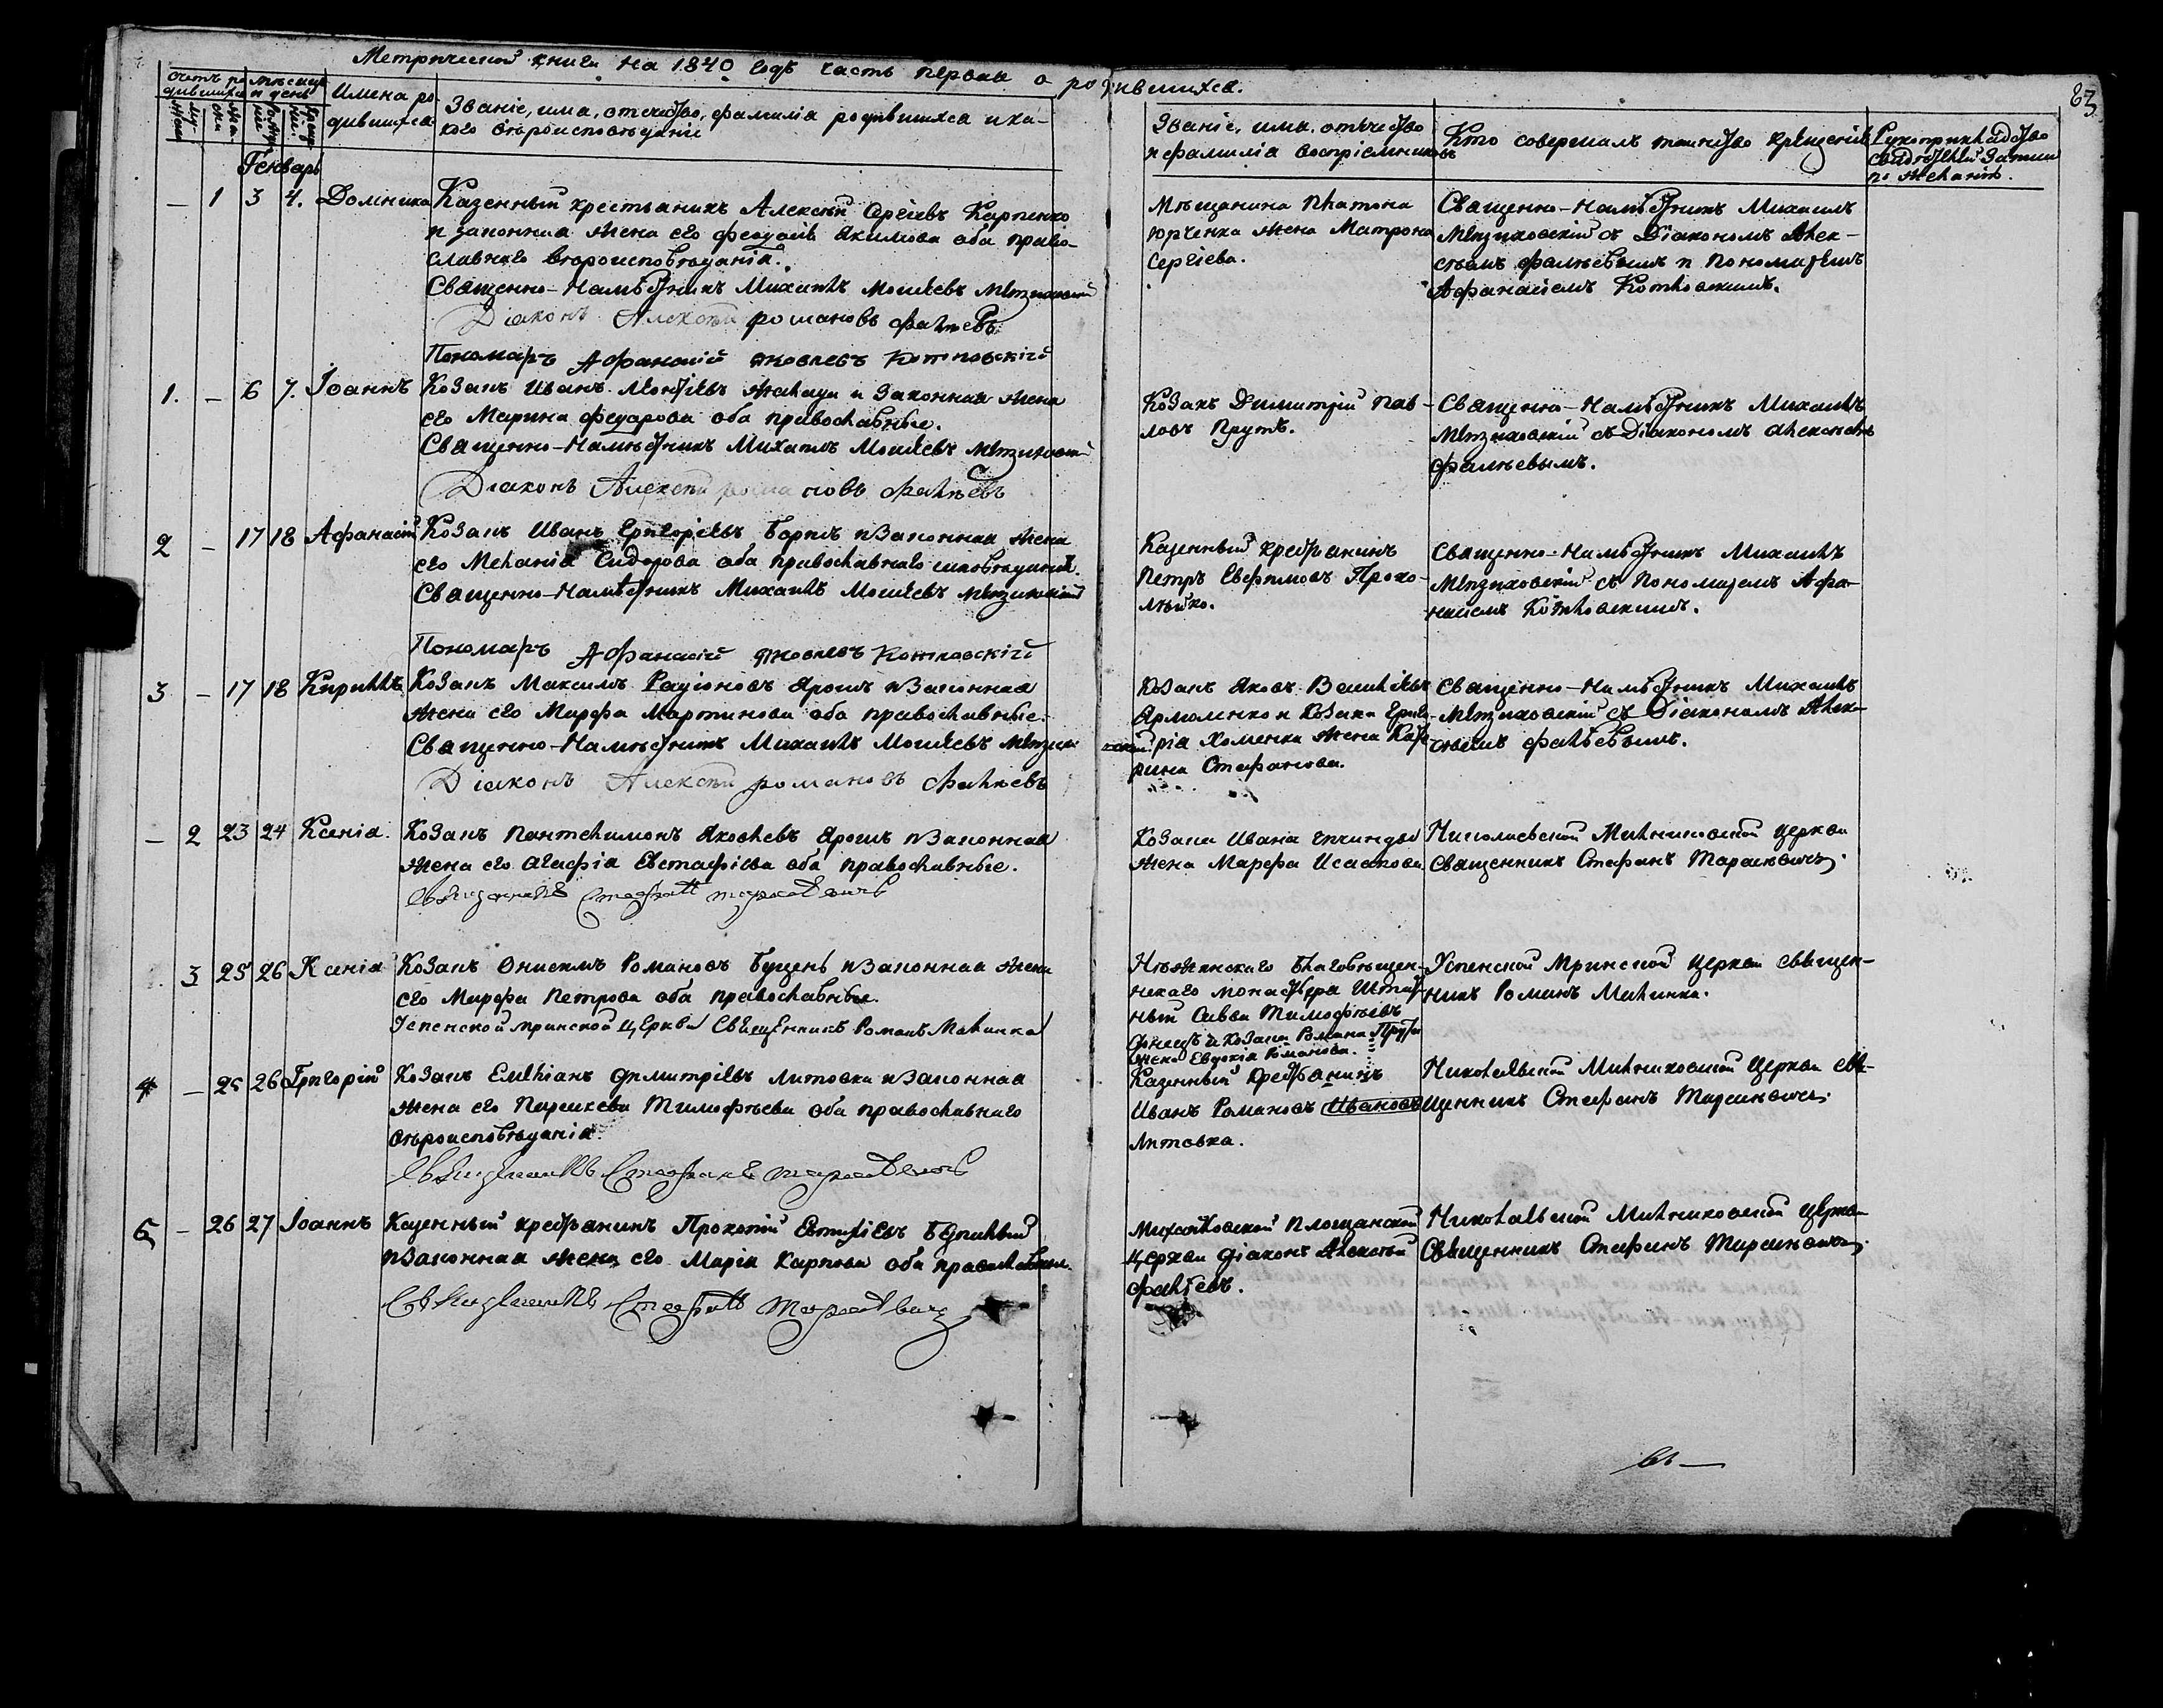 Метрической книги на 1840 годъ часть первая о родившихся.
83
Счетъ родившихся
Мѣсяцъ и день
Имена родившихся
Званіе, имя, отечество, фамилія родившихся и какого вѣроисповѣданія
Званіе, имя, отечество
и фамилія воспріемниковъ
Кто совершалъ таинство крещенія
Рукоприкладство
свидѣтелей записи
по желанію.
Генварь
— 1 3 4. Домника
Казенный крестьянинъ Алексѣй Сергіевъ Карпенко
и законная жена его Феодосія Якимова оба право-
славнаго вѣроисповѣданія.
Священно-Намѣстникъ Михаилъ Моисеевъ
Діаконъ Алексѣй Романовъ Фалѣевъ
Пономарь Афанасій Яковлевъ Котловскій
Мѣщанина Платона
Юрченка жена Матрона
Сергіева.
Священно-Намѣстникъ Михаилъ
съ Діакономъ Алек-
сѣемъ Фалѣевымъ и Пономаремъ
Афанасіемъ Котловскимъ.
1. — 6 7. Іоаннъ
Козакъ Иванъ Леонтіевъ и законная жена
его Марина Федорова оба православные.
Священно-Намѣстникъ Михаилъ Моисеевъ
Діаконъ Алексѣй Романовъ Фалѣевъ
Козакъ Димитрій Пав-
ловъ Прутъ.
Священно-Намѣстникъ Михаилъ
съ Діакономъ Алексѣемъ
Фалѣевымъ.
2 — 17 18 Афанасій
Козакъ Иванъ Григоріевъ и законная жена
его Меланія Сидорова оба православнаго исповѣданія.
Священно-Намѣстникъ Михаилъ Моисеевъ
Пономарь Афанасій Яковлевъ Котловскій
Казенный крестьянинъ
Петръ Евфимовъ Прохо-
Священно-Намѣстникъ Михаилъ
съ Пономаремъ Афа-
насіемъ Котловскимъ.
3 — 17 18 Кириллъ
Козакъ Максимъ Радіоновъ Ярошъ и законная
жена его Марфа Мартинова оба православные.
Священно-Намѣстникъ Михаилъ Моисеевъ
Діаконъ Алексѣй Романовъ Фалѣевъ
Козакъ Яковъ Василіевъ
Ярмоленко и козака Григо-
рія Хоменка жена Кате-
рина Стефанова.
Священно-Намѣстникъ Михаилъ
съ Діакономъ Алек-
сѣемъ Фалѣевымъ.
— 2 23 24 Ксенія.
Козакъ Пантелимонъ Яковлевъ Ярошъ и законная
жена его Агафія Евстафіева оба православные.
Священникъ Стефанъ Тарасевичъ
Козака Ивана
жена Марфа Исаакова
Николаевской церкви
Священникъ Стефанъ Тарасевичъ.
3 25 26 Ксенія
Козакъ Онисимъ Романовъ и законная жена
его Марфа Петрова оба православные.
Успенской Мринской церкви Священникъ Романъ Малинка
Нѣжинскаго Благовѣщен-
скаго монастыря Штат-
ный Савва Тимофѣевъ
и козака Романа Прута
жена Евдокія Романова.
Успенской Мринской церкви священ-
никъ Романъ Малинка.
4 — 25 26 Григорій
Козакъ Емліанъ Димитріевъ Литовка и законная
жена его Параскева Тимофѣева оба православнаго
вѣроисповѣданія.
Священникъ Стефанъ Тарасевичъ
Казенный крестьянинъ
Иванъ Романовъ Ивановъ
Литовка.
Николаевской церкви свя-
щенникъ Стефанъ Тарасевичъ.
5 — 26 27 Іоаннъ
Казенный крестьянинъ Прокопій Евтихіевъ
и законная жена его Марія Карпова оба православные.
Священникъ Стефанъ Тарасевичъ
Михайловской
церкви діаконъ Алексѣй
Фалѣевъ.
Николаевской церкви
Священникъ Стефанъ Тарасевичъ.